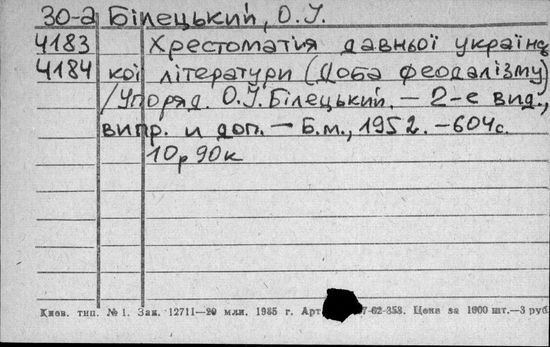 30-а Білецький, О.І.
4183 Хрестоматія давньої українсь
4184 кої літератури (Доба феодалізму)
/Упоряд. О.І. Білецький. — 2-е вид.,
випр. и доп. — Б.м., 1952. — 604 с.
10р 90к
Киев. тип. № 1. Зак. 12711—20 млн. 1985 г. Арт 7-62-353. Цена за 1000 шт.—3 руб